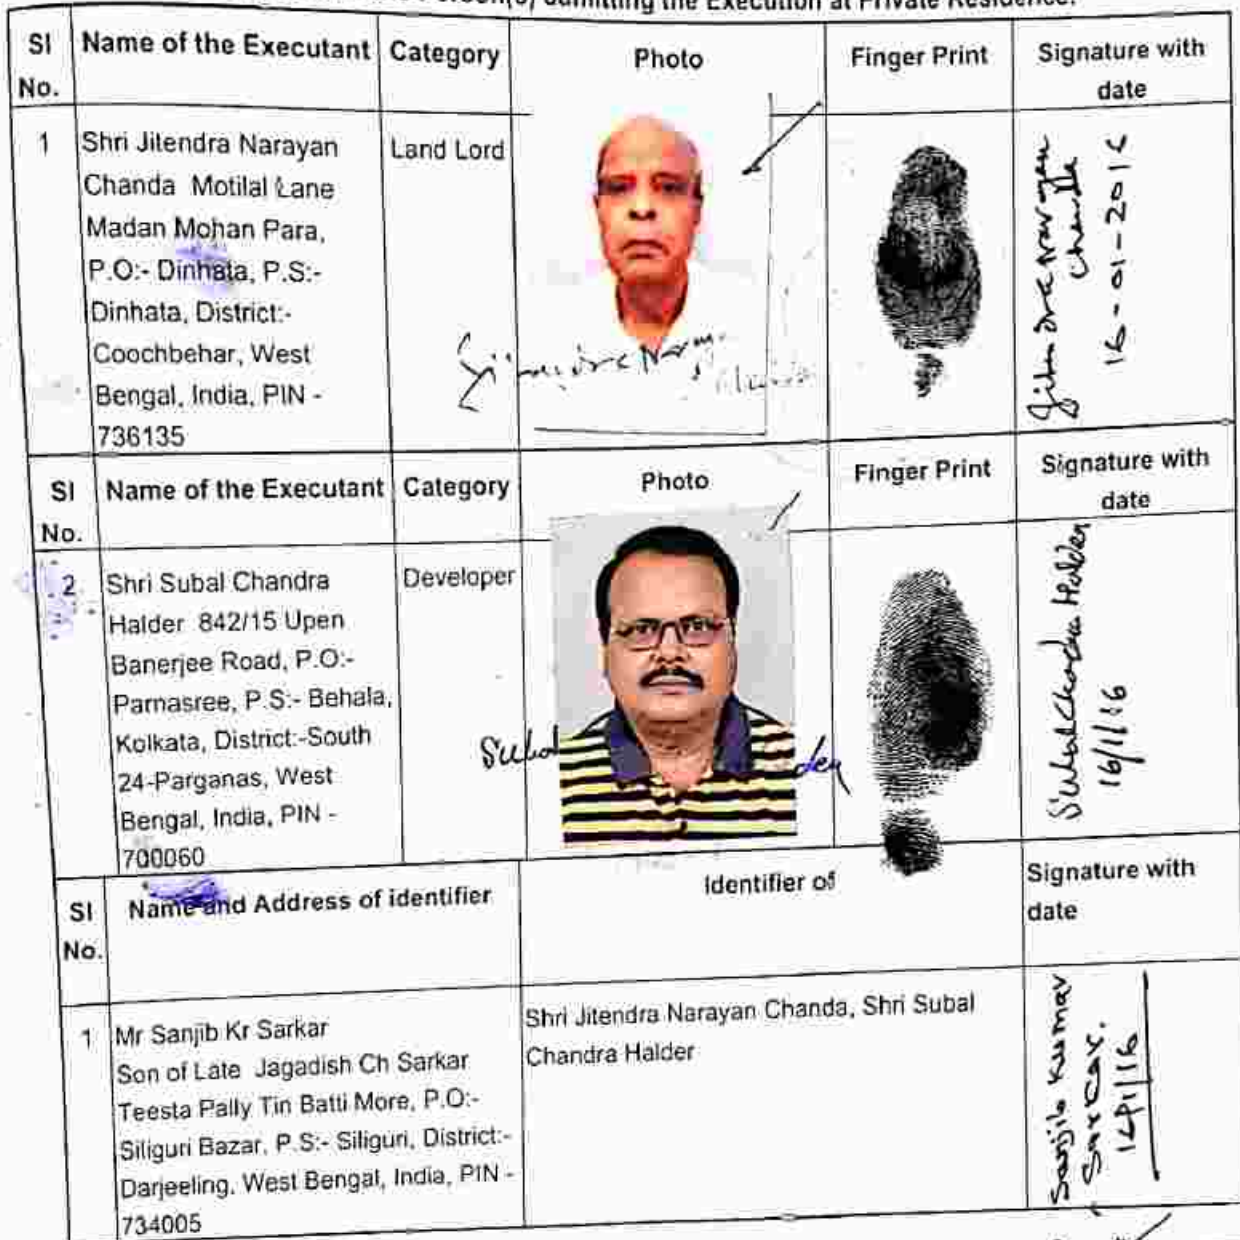 Person(s) admitting the Execution at Private Residence.
Sl No. Name of the Executant Category Photo Finger Print Signature with date
1 Shri Jitendra Narayan Land Lord
Chanda Motilal Lane
Madan Mohan Para,
P.O:- Dinhata, P.S:-
Dinhata, District:-
Coochbehar, West
Bengal, India, PIN -
736135
Jitendra Narayan
Chanda
16-01-2016
Sl No. Name of the Executant Category Photo Finger Print Signature with date
2 Shri Subal Chandra Developer
Halder 842/15 Upen
Banerjee Road, P.O:-
Parnasree, P.S:- Behala,
Kolkata, District:-South
24-Parganas, West
Bengal, India, PIN -
700060
Subal
der
Subal Chandra Halder
16/1/16
Sl No. Name and Address of identifier Identifier of Signature with date
1 Mr Sanjib Kr Sarkar
Son of Late Jagadish Ch Sarkar
Teesta Pally Tin Batti More, P.O:-
Siliguri Bazar, P.S:- Siliguri, District:-
Darjeeling, West Bengal, India, PIN -
734005
Shri Jitendra Narayan Chanda, Shri Subal
Chandra Halder
Sanjib Kumar
Sarkar.
16/1/16